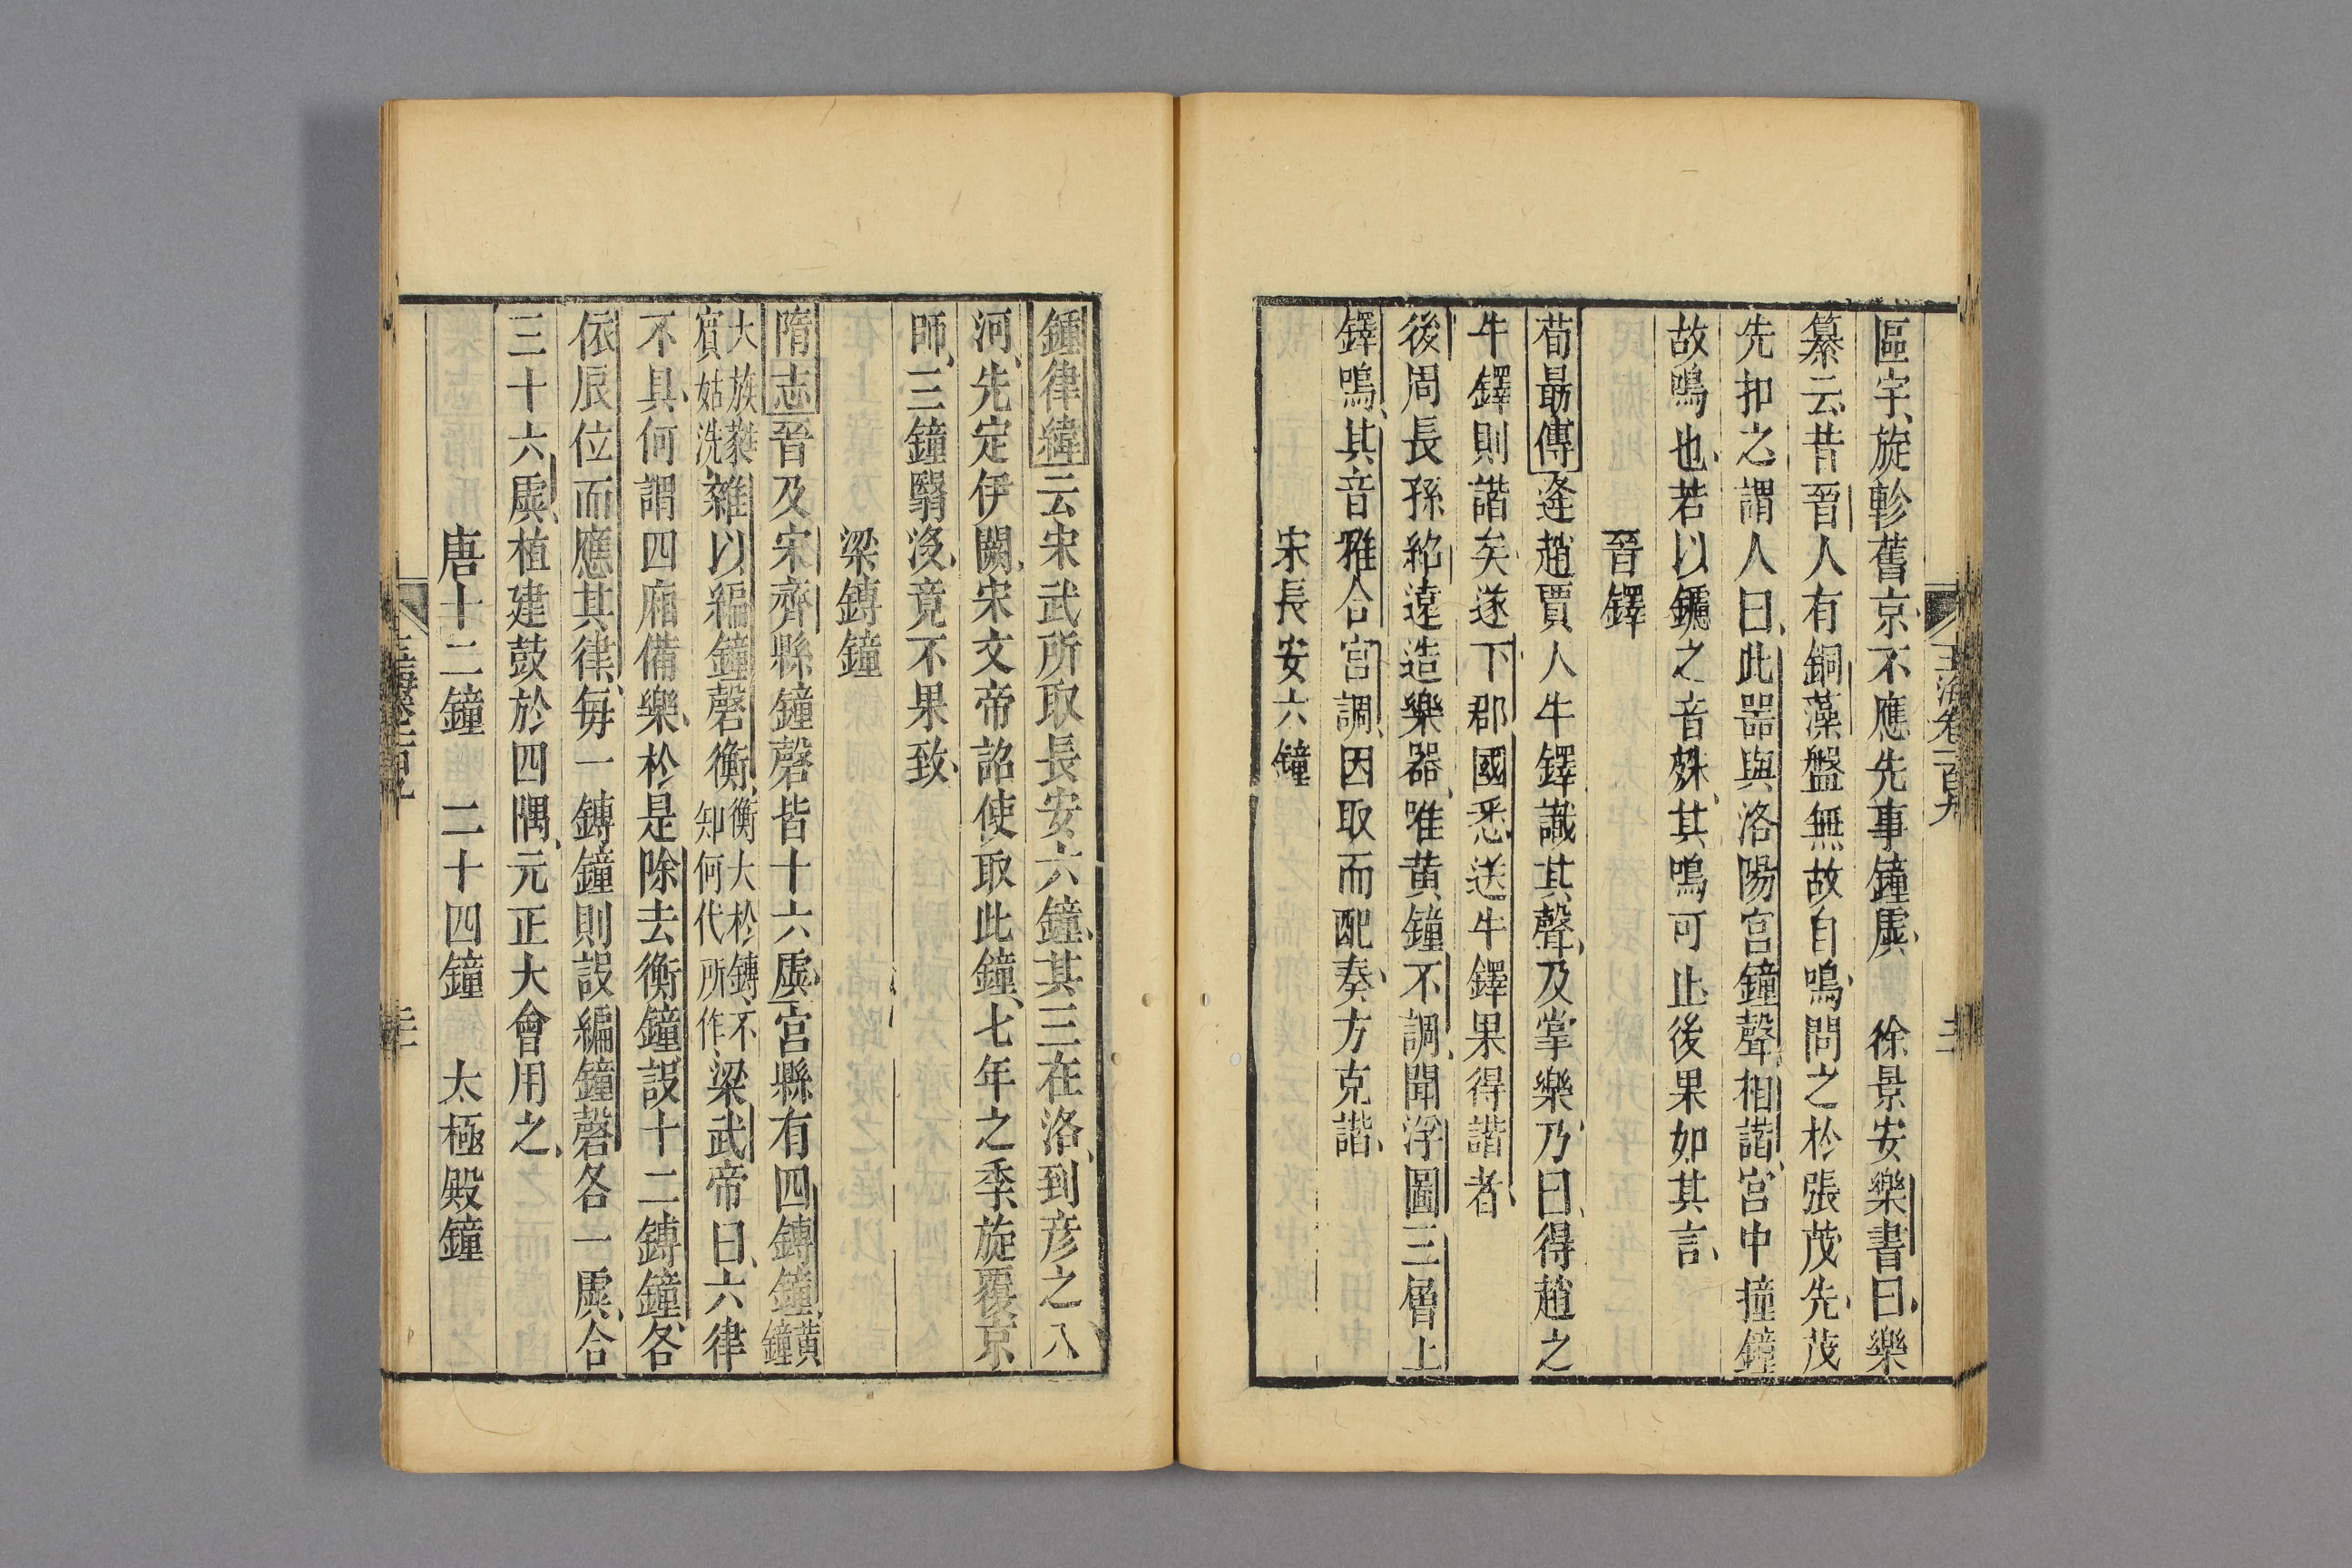 玉海卷一百九
區宇旋軫舊京不應先事鐘虡　徐景安樂書曰樂
纂云昔晉人有銅藻盤無故自鳴問之於張茂先茂
先扣之謂人曰此器與洛陽宮鐘聲相諧宮中撞鐘
故鳴也若以鑢之音殊其鳴可止後果如其言
晉鐸
荀勗傳逢趙賈人牛鐸識其聲及掌樂乃曰得趙之
牛鐸則諧矣遂下郡國悉送牛鐸果得諧者
後周長孫紹遠造樂器唯黃鐘不調聞浮圖三層上
鐸鳴其音雅合宮調因取而配奏方克諧
宋長安六鐘
鍾律緯云宋武所取長安六鐘其三在洛到彦之入
河先定伊闕宋文帝詔使取此鐘七年之季旋覆京
師三鐘翳沒竟不果致
梁鎛鐘
隋志晉及宋齊縣鐘磬皆十六虡宮縣有四鎛鐘黃鐘
大族蕤賓姑洗雜以編鐘磬衡衡大於鎛不知何代所作梁武帝曰六律
不具何謂四廂備樂於是除去衡鐘設十二鎛鐘各
依辰位而應其律每一鎛鐘則設編鐘磬各一虡合
三十六虡植建鼓於四隅元正大會用之
唐十二鐘　二十四鐘　太極殿鐘